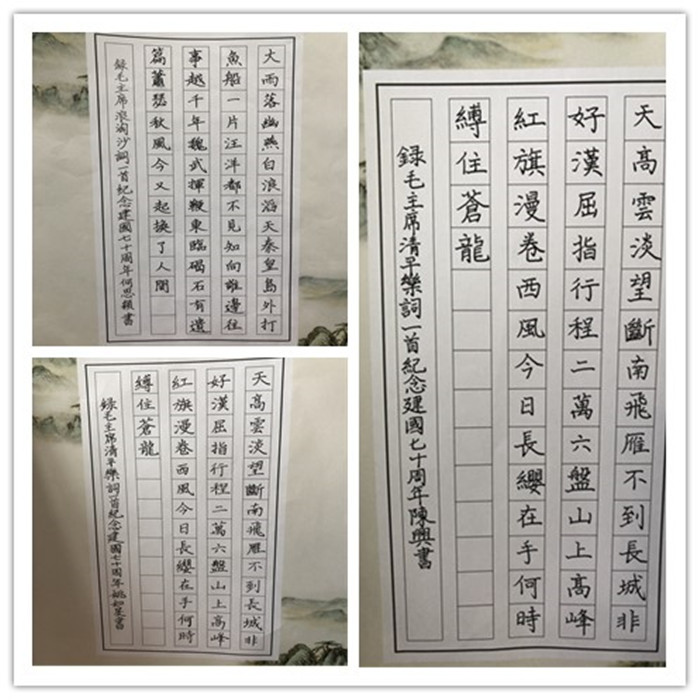 大雨落幽燕白浪滔天秦皇島外打
魚船一片汪洋都不見知向誰邊往
事越千年魏武揮鞭東臨碣石有遺
篇蕭瑟秋風今又起換了人間
録毛主席浪淘沙詞一首紀念建國七十周年何思穎書
天高雲淡望斷南飛雁不到長城非
好漢屈指行程二萬六盤山上高峰
紅旗漫卷西風今日長纓在手何時
縛住蒼龍
録毛主席清平樂詞一首紀念建國七十周年姚如是書
天高雲淡望斷南飛雁不到長城非
好漢屈指行程二萬六盤山上高峰
紅旗漫卷西風今日長纓在手何時
縛住蒼龍
録毛主席清平樂詞一首紀念建國七十周年陳興書